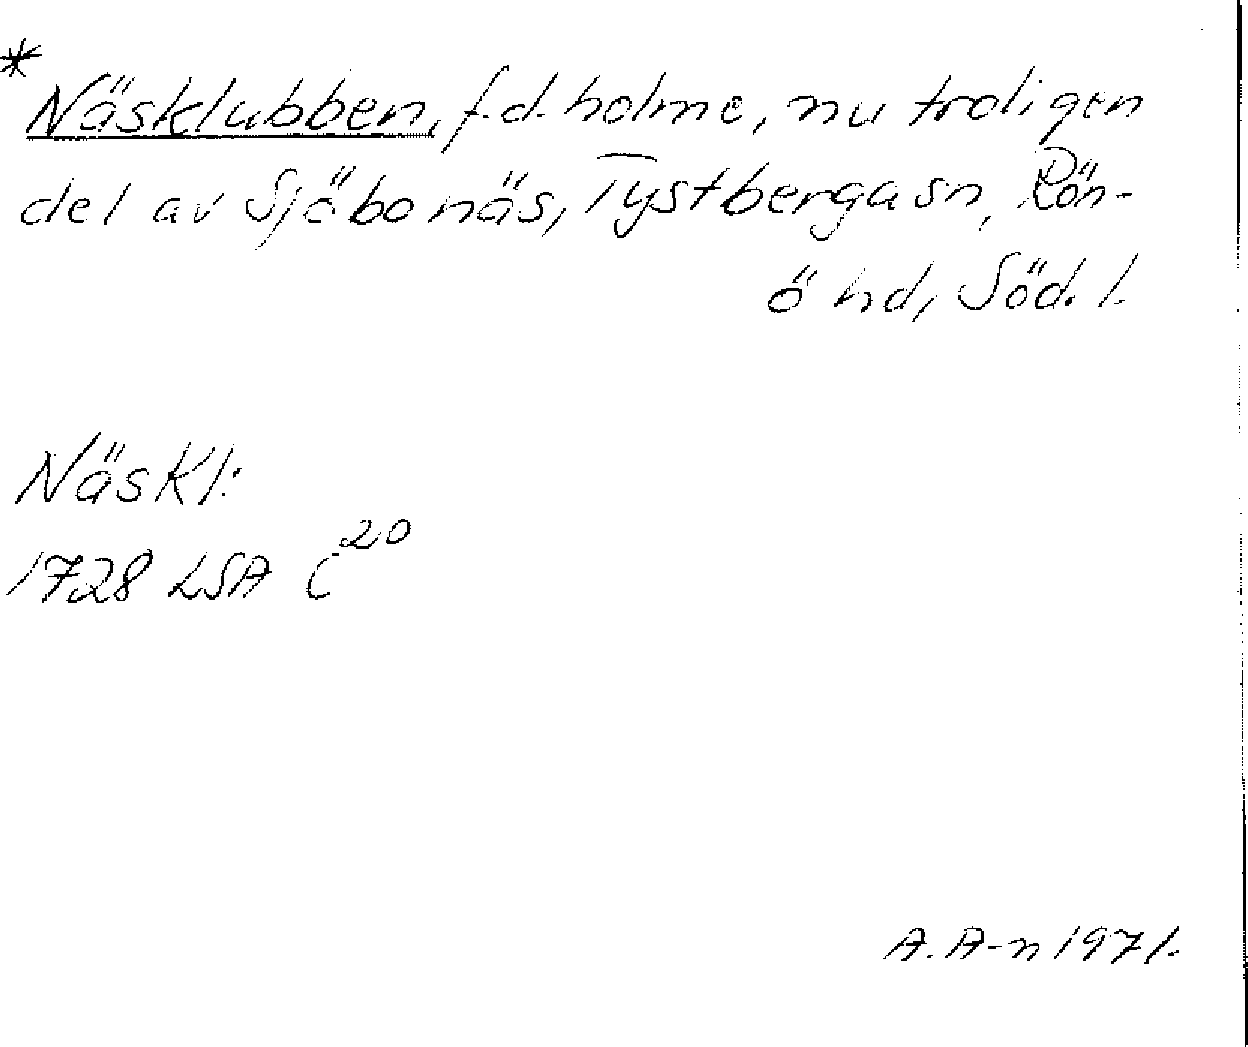 *
Näsklubben, f.d. holme, nu troligen
del av Sjöbonäs, Tystberga sn, Rön-
ö hd, Söd. l.
Näskl:
1728 LSA C20
A. A-n 1971.